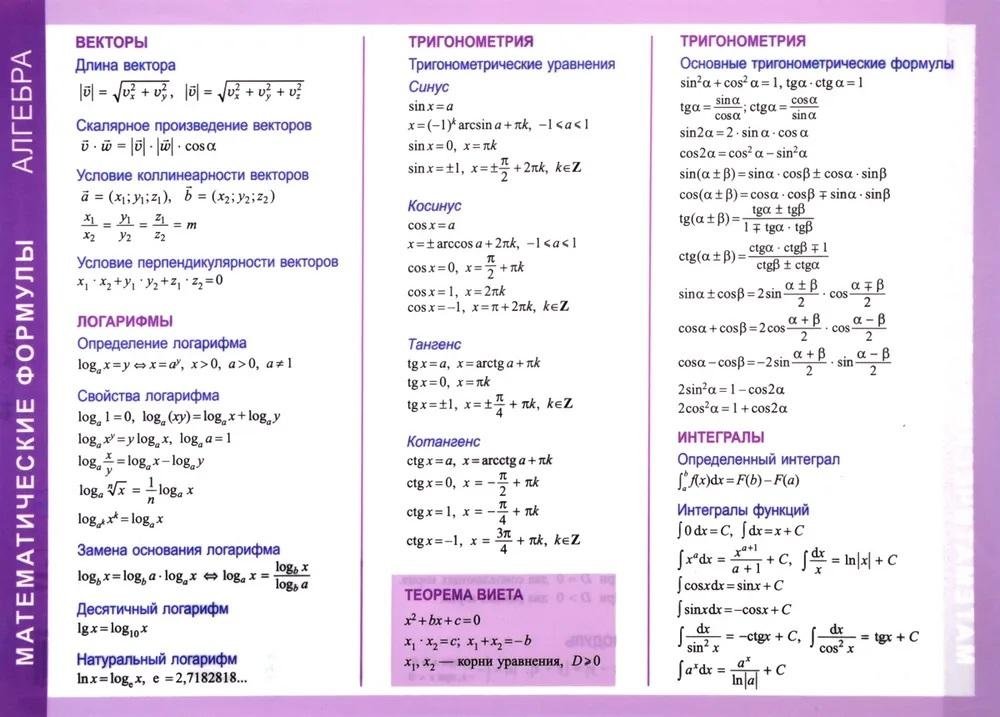 МАТЕМАТИЧЕСКИЕ ФОРМУЛЫ АЛГЕБРА
ВЕКТОРЫ
Длина вектора
|v⃗| = √(vₓ² + vᵧ²), |v⃗| = √(vₓ² + vᵧ² + v_z²)
Скалярное произведение векторов
v⃗ · w⃗ = |v⃗| · |w⃗| · cosα
Условие коллинеарности векторов
a⃗ = (x₁; y₁; z₁), b⃗ = (x₂; y₂; z₂)
x₁/x₂ = y₁/y₂ = z₁/z₂ = m
Условие перпендикулярности векторов
x₁ · x₂ + y₁ · y₂ + z₁ · z₂ = 0
ЛОГАРИФМЫ
Определение логарифма
logₐ x = y ⇔ x = aʸ, x > 0, a > 0, a ≠ 1
Свойства логарифма
logₐ 1 = 0, logₐ (xy) = logₐ x + logₐ y
logₐ xʸ = y logₐ x, logₐ a = 1
logₐ x/y = logₐ x − logₐ y
logₐ ⁿ√x = 1/n logₐ x
log_{aᵏ} xᵏ = logₐ x
Замена основания логарифма
log_b x = log_b a · logₐ x ⇔ logₐ x = log_b x / log_b a
Десятичный логарифм
lg x = log₁₀ x
Натуральный логарифм
ln x = logₑ x, e = 2,7182818...
ТРИГОНОМЕТРИЯ
Тригонометрические уравнения
Синус
sin x = a
x = (−1)ᵏ arcsin a + πk, −1 ⩽ a ⩽ 1
sin x = 0, x = πk
sin x = ±1, x = ± π/2 + 2πk, k∈Z
Косинус
cos x = a
x = ± arccos a + 2πk, −1 ⩽ a ⩽ 1
cos x = 0, x = π/2 + πk
cos x = 1, x = 2πk
cos x = −1, x = π + 2πk, k∈Z
Тангенс
tg x = a, x = arctg a + πk
tg x = 0, x = πk
tg x = ±1, x = ± π/4 + πk, k∈Z
Котангенс
ctg x = a, x = arcctg a + πk
ctg x = 0, x = − π/2 + πk
ctg x = 1, x = − π/4 + πk
ctg x = −1, x = 3π/4 + πk, k∈Z
ТЕОРЕМА ВИЕТА
x² + bx + c = 0
x₁ · x₂ = c; x₁ + x₂ = −b
x₁, x₂ — корни уравнения, D ⩾ 0
ТРИГОНОМЕТРИЯ
Основные тригонометрические формулы
sin²α + cos²α = 1, tgα · ctgα = 1
tgα = sinα/cosα; ctgα = cosα/sinα
sin2α = 2 · sinα · cosα
cos2α = cos²α − sin²α
sin(α ± β) = sinα · cosβ ± cosα · sinβ
cos(α ± β) = cosα · cosβ ∓ sinα · sinβ
tg(α ± β) = (tgα ± tgβ)/(1 ∓ tgα · tgβ)
ctg(α ± β) = (ctgα · ctgβ ∓ 1)/(ctgβ ± ctgα)
sinα ± cosβ = 2sin (α ± β)/2 · cos (α ∓ β)/2
cosα + cosβ = 2cos (α + β)/2 · cos (α − β)/2
cosα − cosβ = −2sin (α + β)/2 · sin (α − β)/2
2sin²α = 1 − cos2α
2cos²α = 1 + cos2α
ИНТЕГРАЛЫ
Определенный интеграл
∫ₐᵇ f(x)dx = F(b) − F(a)
Интегралы функций
∫0 dx = C, ∫dx = x + C
∫xᵃdx = xᵃ⁺¹/(a + 1) + C, ∫dx/x = ln|x| + C
∫cosxdx = sinx + C
∫sinxdx = −cosx + C
∫dx/sin² x = −ctgx + C, ∫dx/cos² x = tgx + C
∫aˣdx = aˣ/ln|a| + C